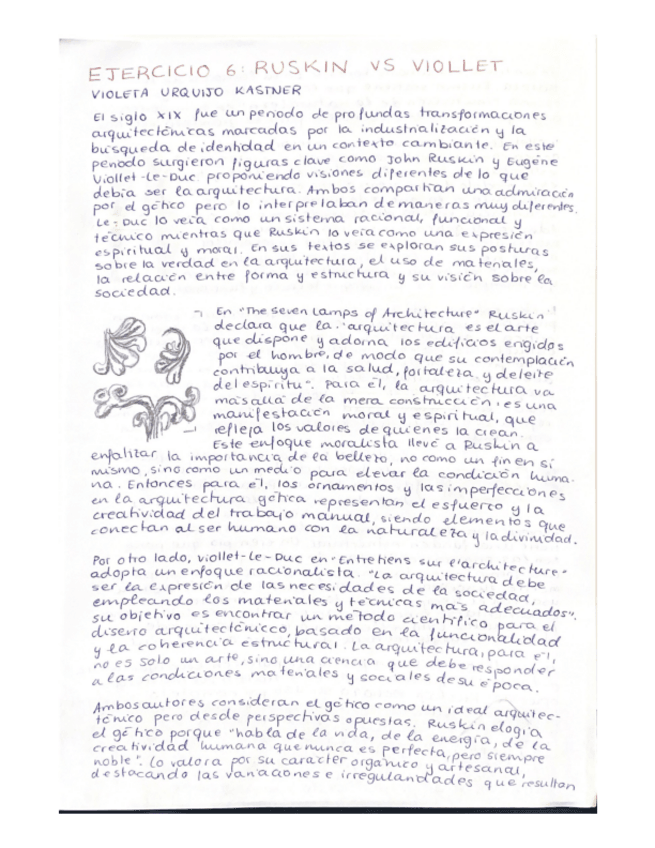 EJERCICIO 6: RUSKIN VS VIOLLET
VIOLETA URQUIJO KASTNER
El siglo XIX fue un periodo de profundas transformaciones
arquitectónicas marcadas por la industrialización y la
búsqueda de identidad en un contexto cambiante. En este
periodo surgieron figuras clave como John Ruskin y Eugène
Viollet-Le-Duc proponiendo visiones diferentes de lo que
debía ser la arquitectura. Ambos compartían una admiración
por el gótico pero lo interpretaban de maneras muy diferentes.
Le-Duc lo veía como un sistema racional, funcional y
técnico mientras que Ruskin lo veía como una expresión
espiritual y moral. En sus textos se exploran sus posturas
sobre la verdad en la arquitectura, el uso de materiales,
la relación entre forma y estructura y su visión sobre la
sociedad.
En "The Seven Lamps of Architecture" Ruskin
declara que la "arquitectura es el arte
que dispone y adorna los edificios erigidos
por el hombre, de modo que su contemplación
contribuya a la salud, fortaleza y deleite
del espíritu". Para él, la arquitectura va
más allá de la mera construcción: es una
manifestación moral y espiritual, que
refleja los valores de quienes la crean.
Este enfoque moralista llevó a Ruskin a
enfatizar la importancia de la belleza, no como un fin en sí
mismo, sino como un medio para elevar la condición huma-
na. Entonces para él, los ornamentos y las imperfecciones
en la arquitectura gótica representan el esfuerzo y la
creatividad del trabajo manual, siendo elementos que
conectan al ser humano con la naturaleza y la divinidad.
Por otro lado, Viollet-Le-Duc en "Entretiens sur l'architecture"
adopta un enfoque racionalista. "La arquitectura debe
ser la expresión de las necesidades de la sociedad,
empleando los materiales y técnicas más adecuados".
Su objetivo es encontrar un método científico para el
diseño arquitectónico, basado en la funcionalidad
y la coherencia estructural. La arquitectura, para él,
no es solo un arte, sino una ciencia que debe responder
a las condiciones materiales y sociales de su época.
Ambos autores consideran el gótico como un ideal arquitec-
tónico pero desde perspectivas opuestas. Ruskin elogia
el gótico porque "habla de la vida, de la energía, de la
creatividad humana que nunca es perfecta, pero siempre
noble". Lo valora por su carácter orgánico y artesanal,
destacando las variaciones e irregularidades que resultan